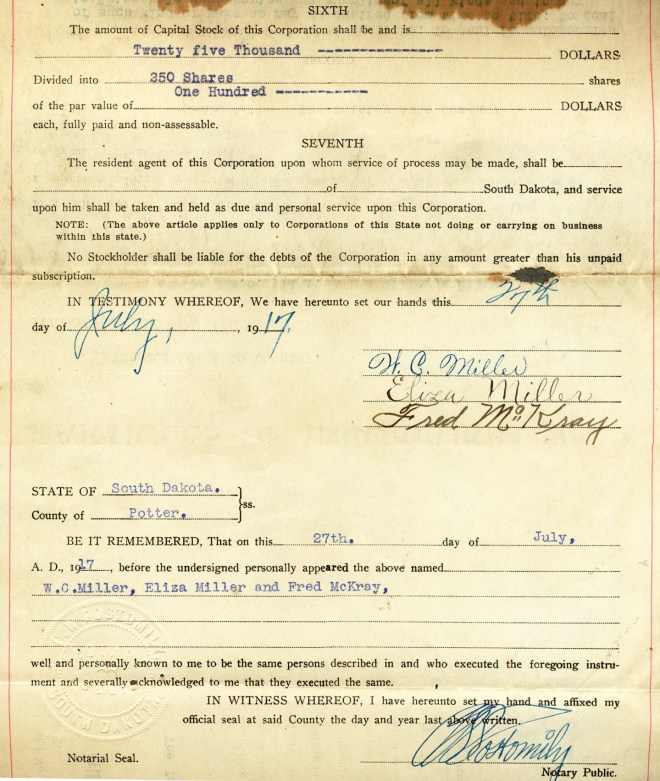 SIXTH
The amount of Capital Stock of this Corporation shall be and is
Twenty five Thousand --------------- DOLLARS
Divided into 250 Shares shares
One Hundred -----------
of the par value of DOLLARS
each, fully paid and non-assessable.
SEVENTH
The resident agent of this Corporation upon whom service of process may be made, shall be
of South Dakota, and service
upon him shall be taken and held as due and personal service upon this Corporation.
NOTE: (The above article applies only to Corporations of this State not doing or carrying on business
within this state.)
No Stockholder shall be liable for the debts of the Corporation in any amount greater than his unpaid
subscription.
IN TESTIMONY WHEREOF, We have hereunto set our hands this 27th
day of July, , 1917.
W. C. Miller
Eliza Miller
Fred McKray
STATE OF South Dakota.
County of Potter. }ss.
BE IT REMEMBERED, That on this 27th. day of July,
A. D., 1917, before the undersigned personally appeared the above named
W.C.Miller, Eliza Miller and Fred McKray,
well and personally known to me to be the same persons described in and who executed the foregoing instru-
ment and severally acknowledged to me that they executed the same.
IN WITNESS WHEREOF, I have hereunto set my hand and affixed my
official seal at said County the day and year last above written.
Notarial Seal.
Notary Public.